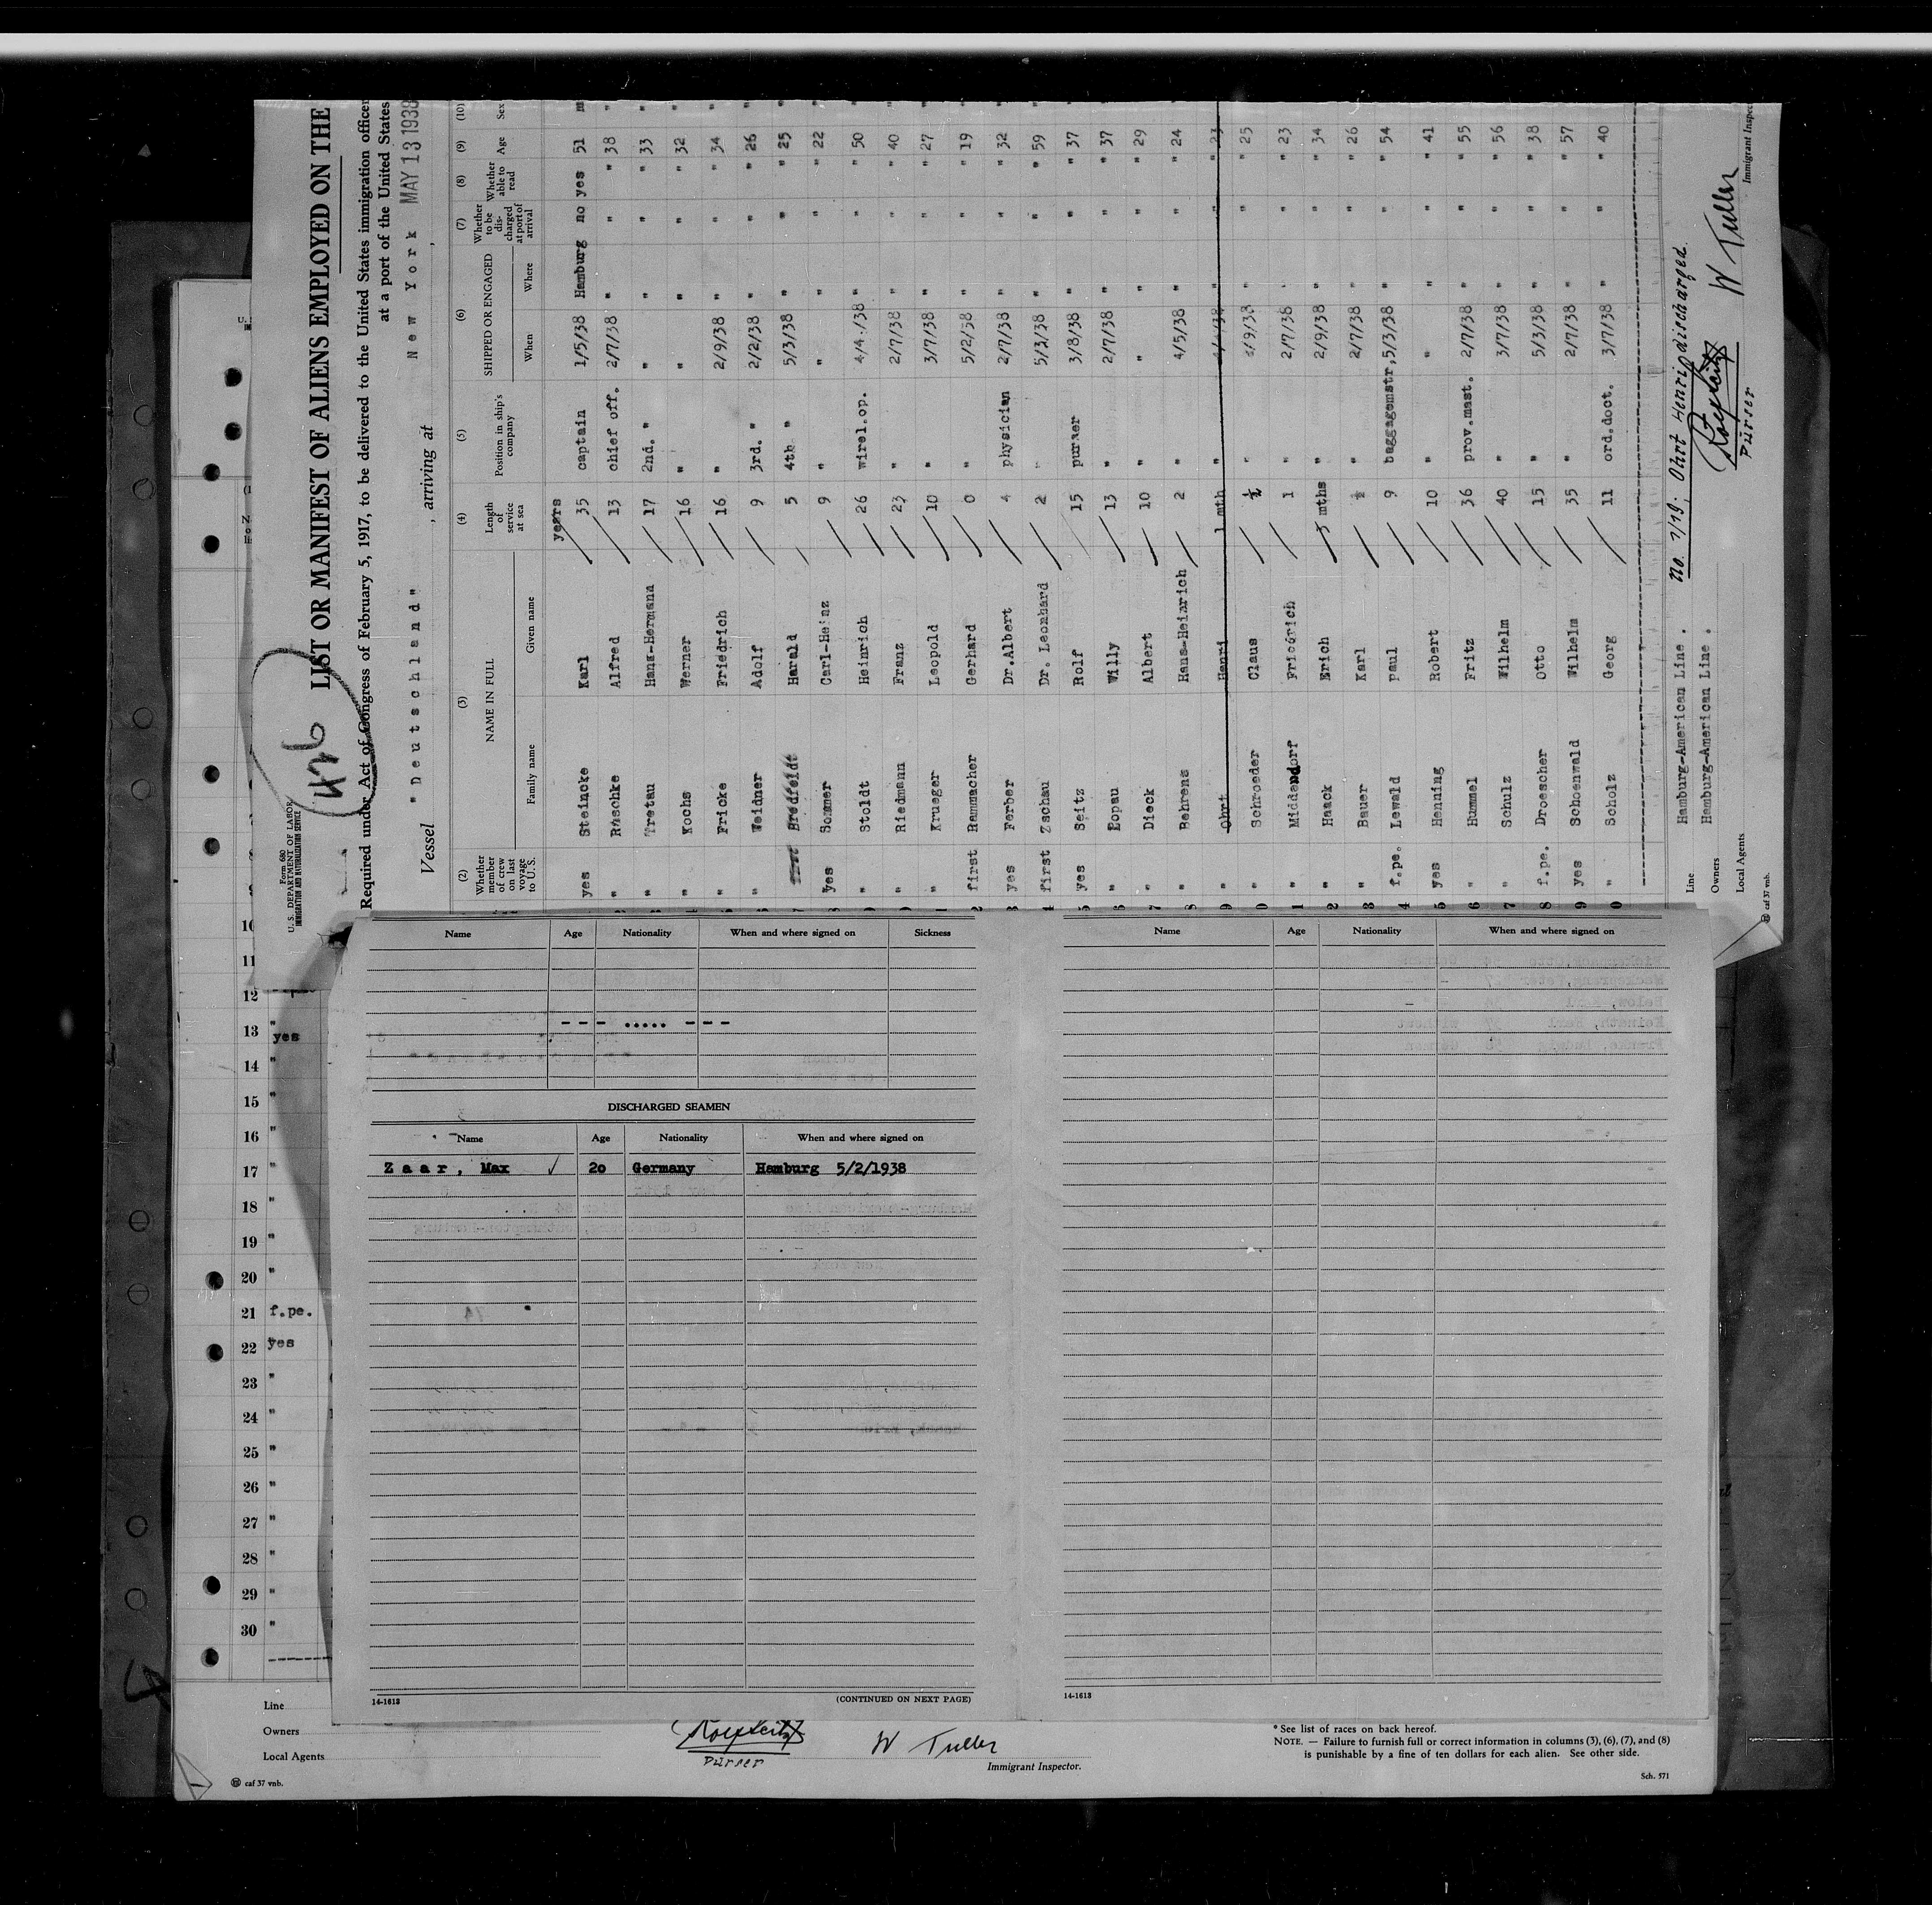 Form 680
U. S. DEPARTMENT OF LABOR
IMMIGRATION AND NATURALIZATION SERVICE
426
LIST OR MANIFEST OF ALIENS EMPLOYED ON THE
Required under Act of Congress of February 5, 1917, to be delivered to the United States immigration officer
at a port of the United States
Vessel "Deutschland" , arriving at New York MAY 13 1938 ,
(2) (3) (4) (5) (6) (7) (8) (9) (10)
Whether member of crew on last voyage to U. S. NAME IN FULL Length of service at sea Position in ship's company SHIPPED OR ENGAGED Whether to be discharged at port of arrival Whether able to read Age Sex
Family name Given name When Where
years
yes Steincke Karl 35 captain 1/5/38 Hamburg no yes 51 m
" Rüschke Alfred 13 chief off. 2/7/38 " " " 38 "
" Tretau Hans-Hermann 17 2nd. " " " " " 33 "
" Kochs Werner 16 " " " " " 32 "
" Fricke Friedrich 16 " 2/9/38 " " " 34 "
" Weidner Adolf 9 3rd. " 2/2/38 " " " 26 "
Bredfeldt Harald 5 4th " 5/3/38 " " " 25 "
yes Sommer Carl-Heinz 9 " " " " " 22 "
" Stoldt Heinrich 26 wirel.op. 4/4/38 " " " 50 "
" Riedmann Franz 23 " 2/7/38 " " " 40 "
" Krueger Leopold 10 " 3/7/38 " " " 27 "
first Rammacher Gerhard 0 " 5/2/38 " " " 19 "
yes Ferber Dr.Albert 4 physician 2/7/38 " " " 32 "
first Zschau Dr. Leonhard 2 " 5/3/38 " " " 59 "
yes Seitz Rolf 15 purser 3/8/38 " " " 37 "
" Eopau Willy 13 " 2/7/38 " " " 37 "
" Dieck Albert 10 " " " " " 29 "
" Behrens Hans-Heinrich 2 " 4/5/38 " " " 24 "
" Ohrt Henri 1 mth " " " " 23
" Schroeder Claus ½ " 3/9/38 " " " 25 "
" Middendorf Friedrich 1 " 2/7/38 " " " 23 "
" Haack Erich 3 mths " 2/9/38 " " " 34 "
" Bauer Karl ½ " 2/7/38 " " " 26 "
f.pe. Lewald Paul 9 baggagemstr, 5/3/38 " " " 54 "
yes Henning Robert 10 " " " " " 41 "
" Hummel Fritz 36 prov.mast. 2/7/38 " " " 55 "
" Schulz Wilhelm 40 " 3/7/38 " " " 56 "
f.pe. Droescher Otto 15 " 5/3/38 " " " 38 "
yes Schoenwald Wilhelm 35 " 2/7/38 " " " 57 "
" Scholz Georg 11 ord.doct. 3/7/38 " " " 40 "
Line Hamburg-American Line. No. 1/19; Ohrt Henri, discharged
Owners Hamburg-American Line.
Local Agents
Purser
W Tuller
Immigrant Inspec
caf 37 vnb.
10
11
12
13 " yes
14 "
15 "
16 "
17 "
18 "
19 "
20 "
21 f.pe.
22 yes
23 "
24 "
25 "
26 "
27 "
28 "
29 "
30 "
Name Age Nationality When and where signed on Sickness
--- ..... ---
DISCHARGED SEAMEN
Name Age Nationality When and where signed on
Zaar, Max ✓ 20 Germany Hamburg 5/2/1938
14-1613 (CONTINUED ON NEXT PAGE)
Name Age Nationality When and where signed on
14-1613
Line
Owners
Local Agents
Purser
W Tuller
Immigrant Inspector.
* See list of races on back hereof.
NOTE. — Failure to furnish full or correct information in columns (3), (6), (7), and (8)
is punishable by a fine of ten dollars for each alien. See other side.
caf 37 vnb.
Sch. 571